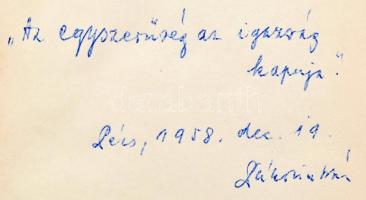 „Az egyszerűség az igazság
kapuja".
Pécs, 1958. dec. 19.